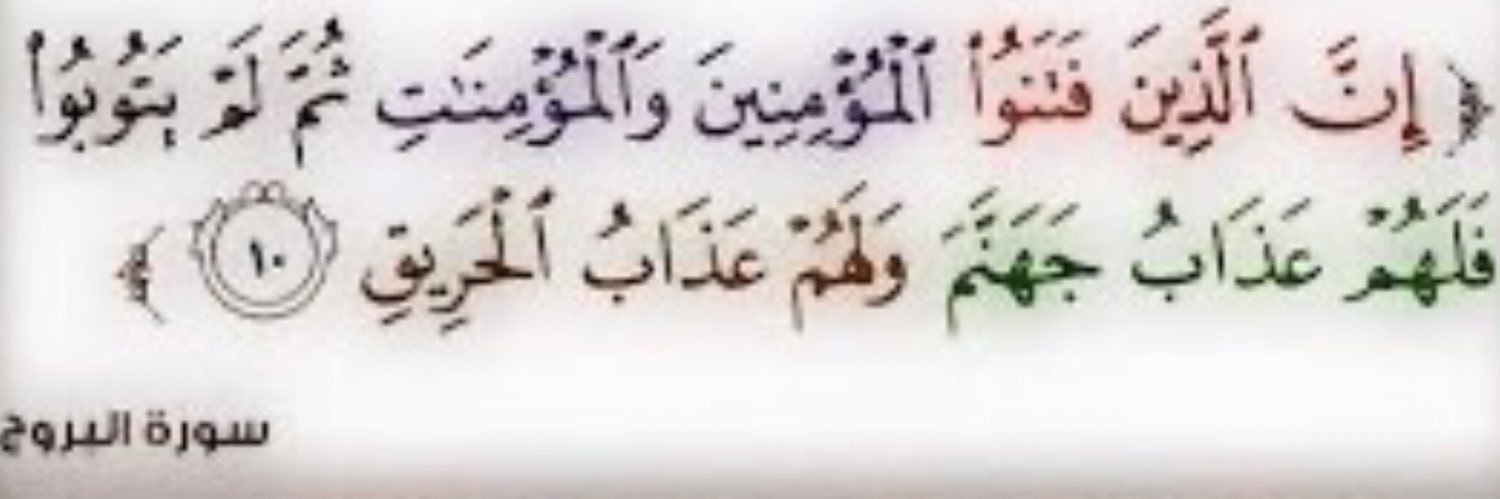 ﴿ إِنَّ ٱلَّذِينَ فَتَنُوا۟ ٱلْمُؤْمِنِينَ وَٱلْمُؤْمِنَـٰتِ ثُمَّ لَمْ يَتُوبُوا۟
فَلَهُمْ عَذَابُ جَهَنَّمَ وَلَهُمْ عَذَابُ ٱلْحَرِيقِ ١٠ ﴾
سورة البروج